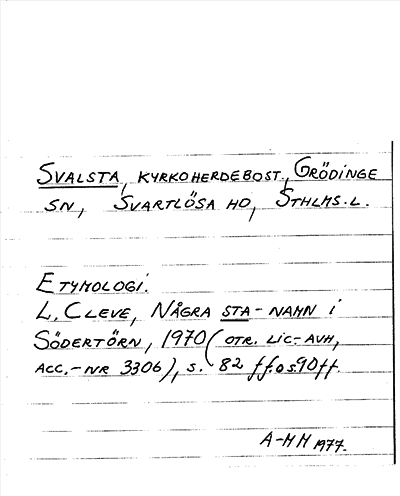 SVALSTA, KYRKOHERDEBOST., GRÖDINGE
SN, SVARTLÖSA HD, STHLMS.L.
ETYMOLOGI.
L. CLEVE, NÅGRA STA-NAMN I
SÖDERTÖRN, 1970 (OTR. LIC.-AVH,
ACC.-NR 3306), S. 82 ff. o s 90 ff.
A-MM 1977.